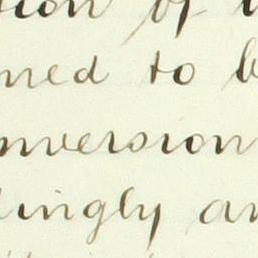 sion of
ned to b
nversion
dingly an